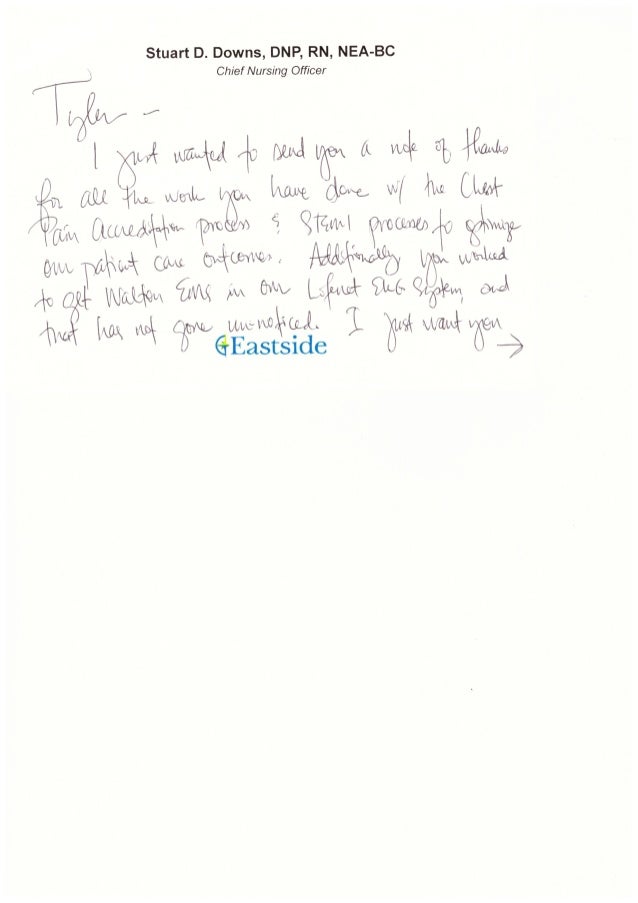 Stuart D. Downs, DNP, RN, NEA-BC
Chief Nursing Officer
Tyler -
I just wanted to send you a note of thanks
for all the work you have done w/ the Chest
Pain Accreditation process & STEMI processes to optimize
our patient care outcomes. Additionally you worked
to get Walton EMS in our Lifenet EKG System, and
that has not gone un-noticed. I just want you
Eastside →